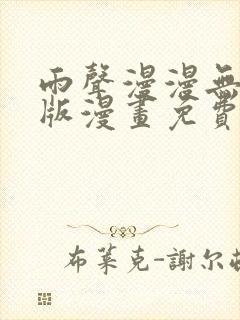 雨聲漫漫無
版漫畫免費
布萊克-謝尔